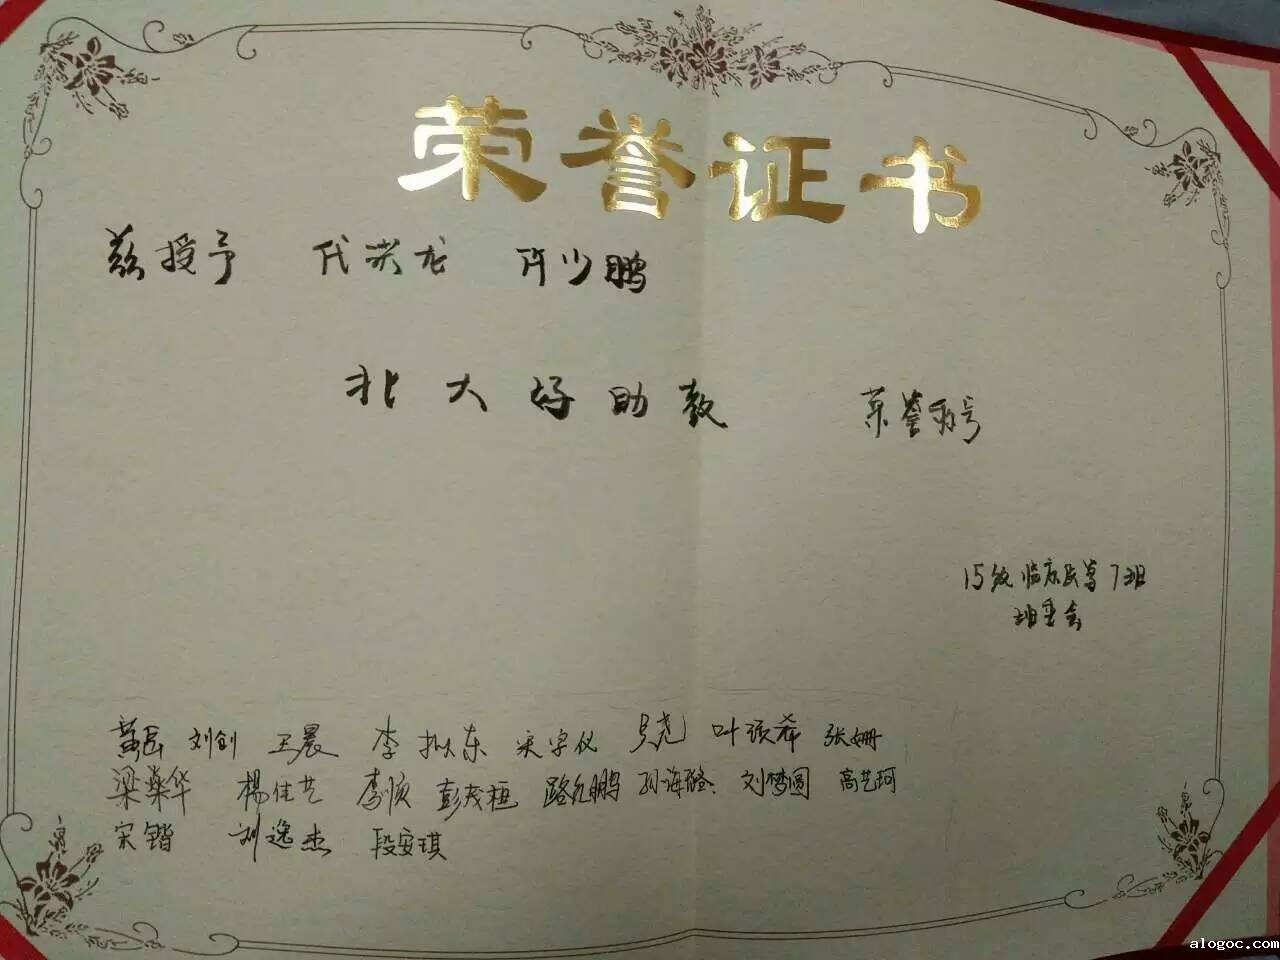 荣誉证书
兹授予 代洪龙 许少鹏
北大好助教 荣誉称号
15级临床医学7班
班委会
刘创 王晨 李拟东 叶颂希 张姗
梁燊华 杨佳艺 李顺 彭茂桓 路允鹏 孙海 刘梦圆 高艺珂
宋锴 刘逸杰 段安琪
alogoc.com